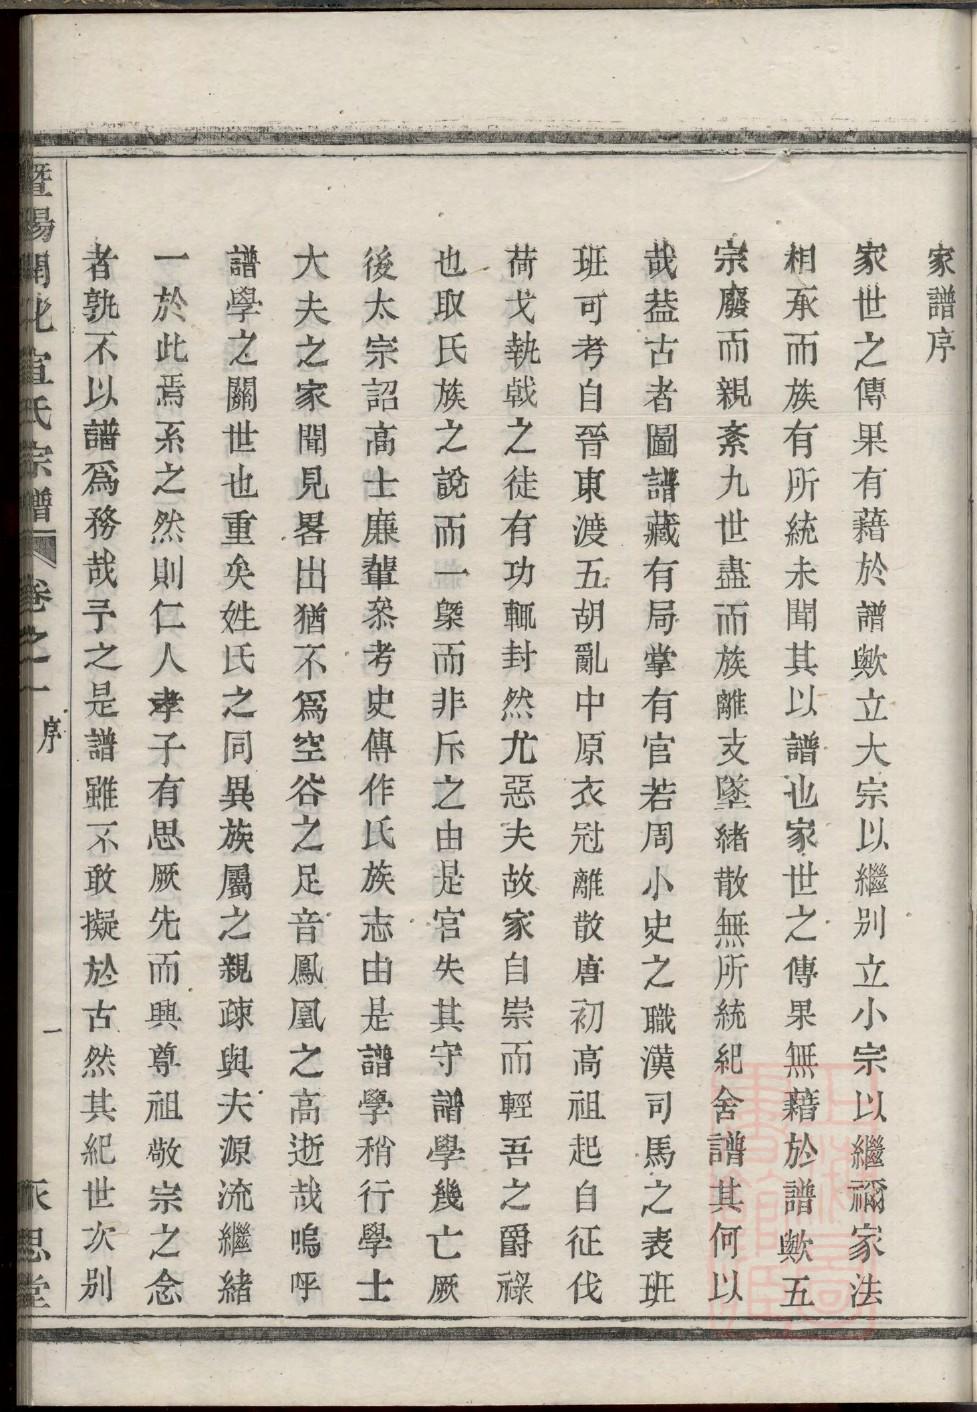 家譜序
家世之傳果有藉於譜歟立大宗以繼別立小宗以繼禰家法
相承而族有所統未聞其以譜也家世之傳果無藉於譜歟五
宗廢而親紊九世盡而族離支墜緒散無所統紀舍譜其何以
哉葢古者圖譜藏有局掌有官若周小史之職漢司馬之表班
班可考自晉東渡五胡亂中原衣冠離散唐初高祖起自征伐
荷戈執戟之徒有功輒封然尤惡夫故家自崇而輕吾之爵祿
也取氏族之說而一槩而非斥之由是官失其守譜學幾亡厥
後太宗詔高士廉輩叅考史傳作氏族志由是譜學稍行學士
大夫之家聞見畧出猶不爲空谷之足音鳳凰之高逝哉嗚呼
譜學之關世也重矣姓氏之同異族屬之親疎與夫源流繼緒
一於此焉系之然則仁人孝子有思厥先而興尊祖敬宗之念
者孰不以譜爲務哉予之是譜雖不敢擬於古然其紀世次別
暨陽開化宣氏宗譜 卷之一 序 一 永思堂